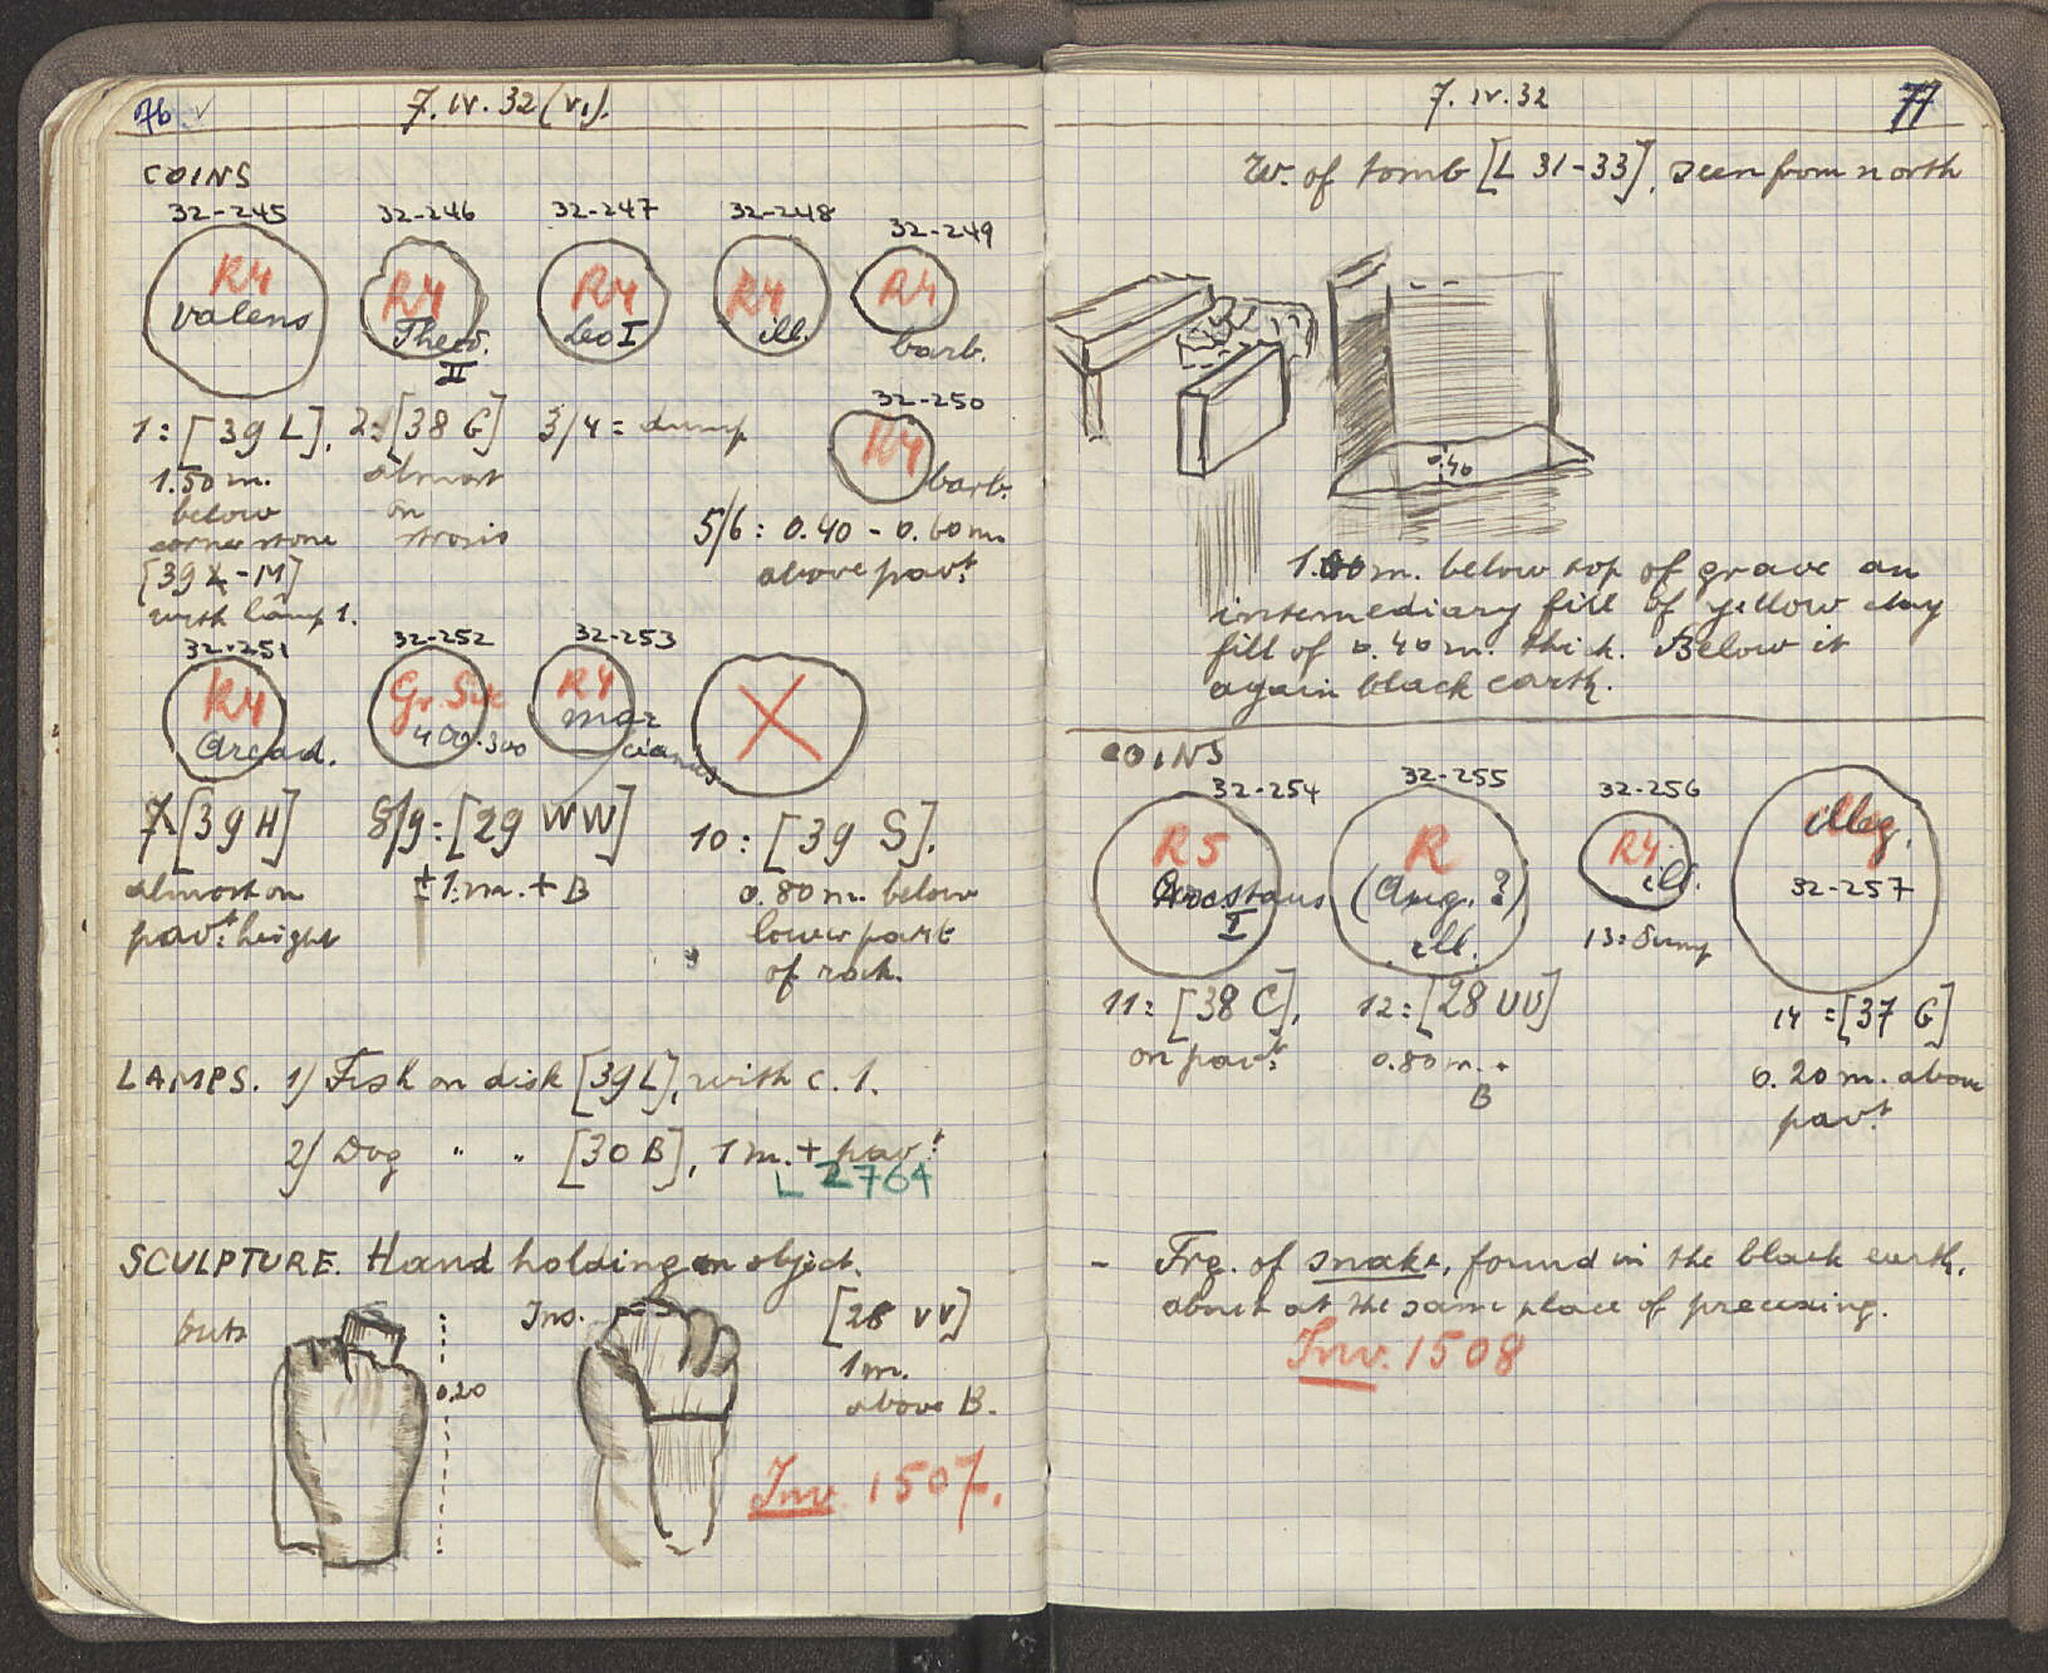 76 7. IV. 32 (VI).
COINS
32-245 32-246 32-247 32-248 32-249
R4 R4 R4 R4 R4
Valens Theod. II Leo I ill. barb.
32-250
R4
barb.
1: [39 L], 2: [38 G] 3/4 = dump
1.50 m. almost
below on
corner stone strosis
[39 L-M]
with lamp 1.
5/6: 0.40 - 0.60 m.
above pavt.
32-251 32-252 32-253
R4 Gr. Sic R4 X
Arcad. 400-300 Marcianus
7 [39 H] 8/9: [29 WW] 10: [39 S],
almost on ± 1. m. + B 0.80 m. below
pavt. height lower part
of rock.
LAMPS. 1) Fish on disk [39 L], with c. 1.
2) Dog " " [30 B], 1 m. + pavt.
L 2764
SCULPTURE. Hand holding an object.
outs Ins. [28 VV]
0.20 1 m.
above B.
Inv. 1507.
7. IV. 32 77
W. of tomb [L 31-33], seen from north
0.40
1.00 m. below top of grave an
intermediary fill of yellow clay
fill of 0.40 m. thick. Below it
again black earth.
COINS
32-254 32-255 32-256
R5 R R4 illeg.
I (Aug. ?) ill. ill. 32-257
13: dump
11: [38 C], 12: [28 UU] 14 = [37 G]
on pavt. 0.80 m. + 0.20 m. above
B pavt.
- Frg. of snake, found in the black earth,
about at the same place of preceding.
Inv. 1508